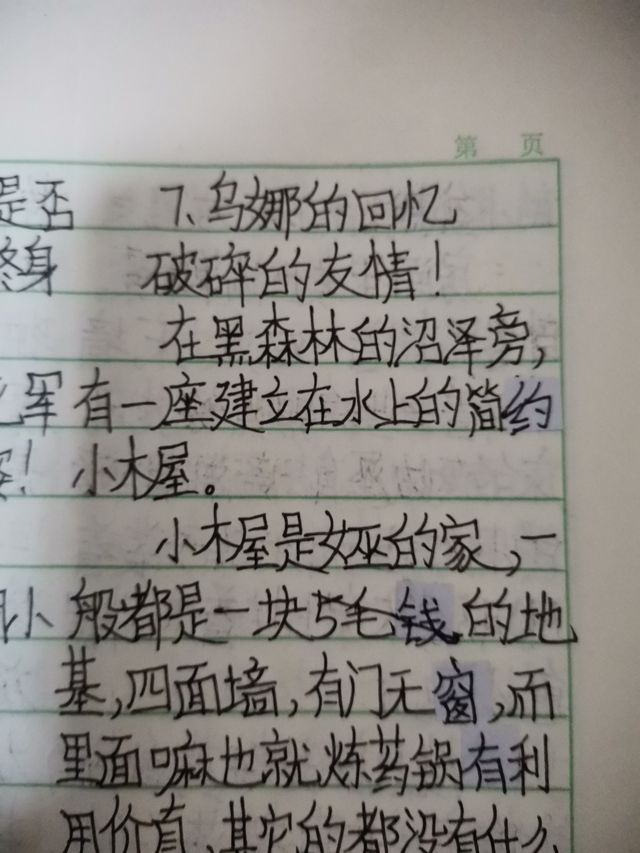 第 页
是否 7、乌娜的回忆
终身 破碎的友情！
在黑森林的沼泽旁，
军 有一座建立在水上的简约
！ 小木屋。
小木屋是女巫的家，一
小 般都是一块5毛钱的地
基，四面墙，有门无窗，而
里面嘛也就炼药锅有利
用价直，其它的都没有什么